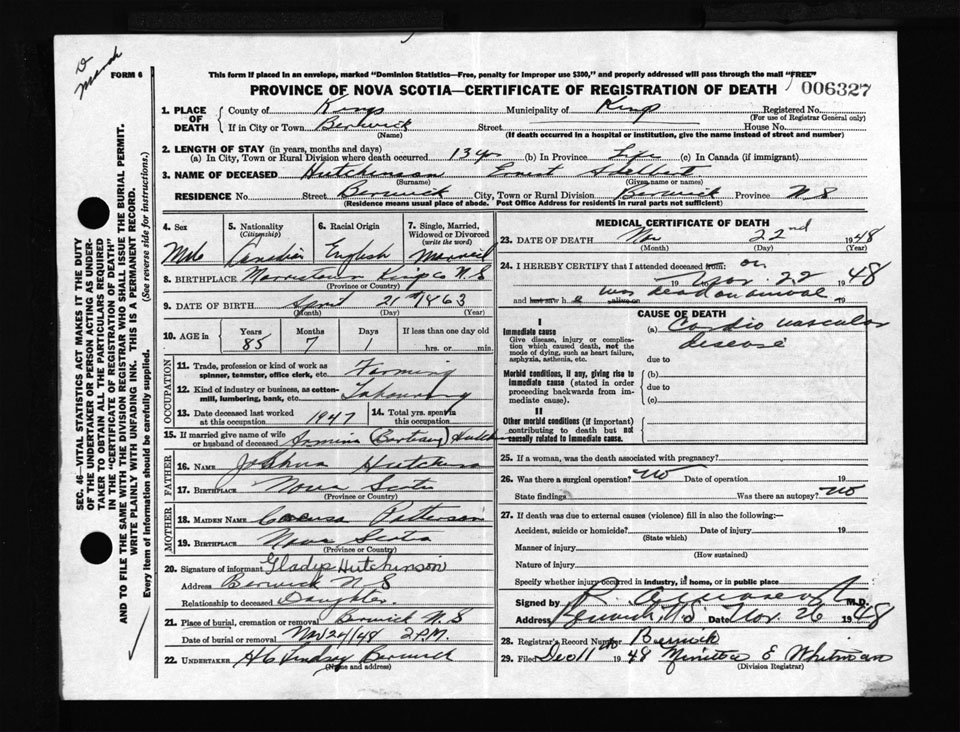 D
Marsh
FORM 6
This form if placed in an envelope, marked "Dominion Statistics—Free, penalty for improper use $300," and properly addressed will pass through the mail "FREE"
PROVINCE OF NOVA SCOTIA—CERTIFICATE OF REGISTRATION OF DEATH
006327
1. PLACE OF DEATH
County of Kings Municipality of Kings Registered No.
(For use of Registrar General only)
If in City or Town Berwick Street House No.
(Name) (If death occurred in a hospital or institution, give the name instead of street and number)
2. LENGTH OF STAY (in years, months and days)
(a) In City, Town or Rural Division where death occurred 13 yrs (b) In Province Life (c) In Canada (if immigrant)
3. NAME OF DECEASED Hutchinson Ernest Adelbert
(Surname) (Given name or names)
RESIDENCE No Street Berwick City, Town or Rural Division Berwick Province N S
(Residence means usual place of abode. Post Office Address for residents in rural parts not sufficient)
4. Sex
Male
5. Nationality
(Citizenship)
Canadian
6. Racial Origin
English
7. Single, Married, Widowed or Divorced
(write the word)
Married
8. BIRTHPLACE Morristown Kings Co N.S
(Province or Country)
9. DATE OF BIRTH April 21 1863
(Month) (Day) (Year)
10. AGE in
Years Months Days If less than one day old
85 7 1 hrs. or min.
OCCUPATION
11. Trade, profession or kind of work as spinner, teamster, office clerk, etc. Farming
12. Kind of industry or business, as cotton-mill, lumbering, bank, etc. Labouring
13. Date deceased last worked at this occupation 1947
14. Total yrs. spent in this occupation
15. If married give name of wife or husband of deceased
FATHER
16. NAME Joshua Hutchinson
17. BIRTHPLACE Nova Scotia
(Province or Country)
MOTHER
18. MAIDEN NAME Patterson
19. BIRTHPLACE Nova Scotia
(Province or Country)
20. Signature of informant Gladys Hutchinson
Address Berwick N S
Relationship to deceased Daughter.
21. Place of burial, cremation or removal Berwick N.S
Date of burial or removal Nov 24/48 2 P.M.
22. UNDERTAKER Lindsay Berwick
(Name and address)
MEDICAL CERTIFICATE OF DEATH
23. DATE OF DEATH Nov 22nd 1948
(Month) (Day) (Year)
24. I HEREBY CERTIFY that I attended deceased from: on
19 Nov. 22 1948
and last saw h e was dead on arrival alive on 19
CAUSE OF DEATH
I
Immediate cause
Give disease, injury or complication which caused death, not the mode of dying, such as heart failure, asphyxia, asthenia, etc.
(a) Cardio vascular disease
due to
Morbid conditions, if any, giving rise to immediate cause (stated in order proceeding backwards from immediate cause).
(b)
due to
(c)
II
Other morbid conditions (if important) contributing to death but not causally related to immediate cause.
25. If a woman, was the death associated with pregnancy?
26. Was there a surgical operation? No Date of operation 19
State findings Was there an autopsy? No
27. If death was due to external causes (violence) fill in also the following:—
Accident, suicide or homicide? Date of injury 19
(State which)
Manner of injury
(How sustained)
Nature of injury
Specify whether injury occurred in industry, in home, or in public place
Signed by M.D.
Address Berwick, N.S Date Nov. 26 1948
28. Registrar's Record Number Berwick
29. Filed Dec 11th 1948 E Whitman
(Division Registrar)
SEC. 46—VITAL STATISTICS ACT MAKES IT THE DUTY
OF THE UNDERTAKER OR PERSON ACTING AS UNDER-
TAKER TO OBTAIN ALL THE PARTICULARS REQUIRED
IN THE "CERTIFICATE OF REGISTRATION OF DEATH"
AND TO FILE THE SAME WITH THE DIVISION REGISTRAR WHO SHALL ISSUE THE BURIAL PERMIT.
WRITE PLAINLY WITH UNFADING INK. THIS IS A PERMANENT RECORD.
Every item of information should be carefully supplied. (See reverse side for instructions.)